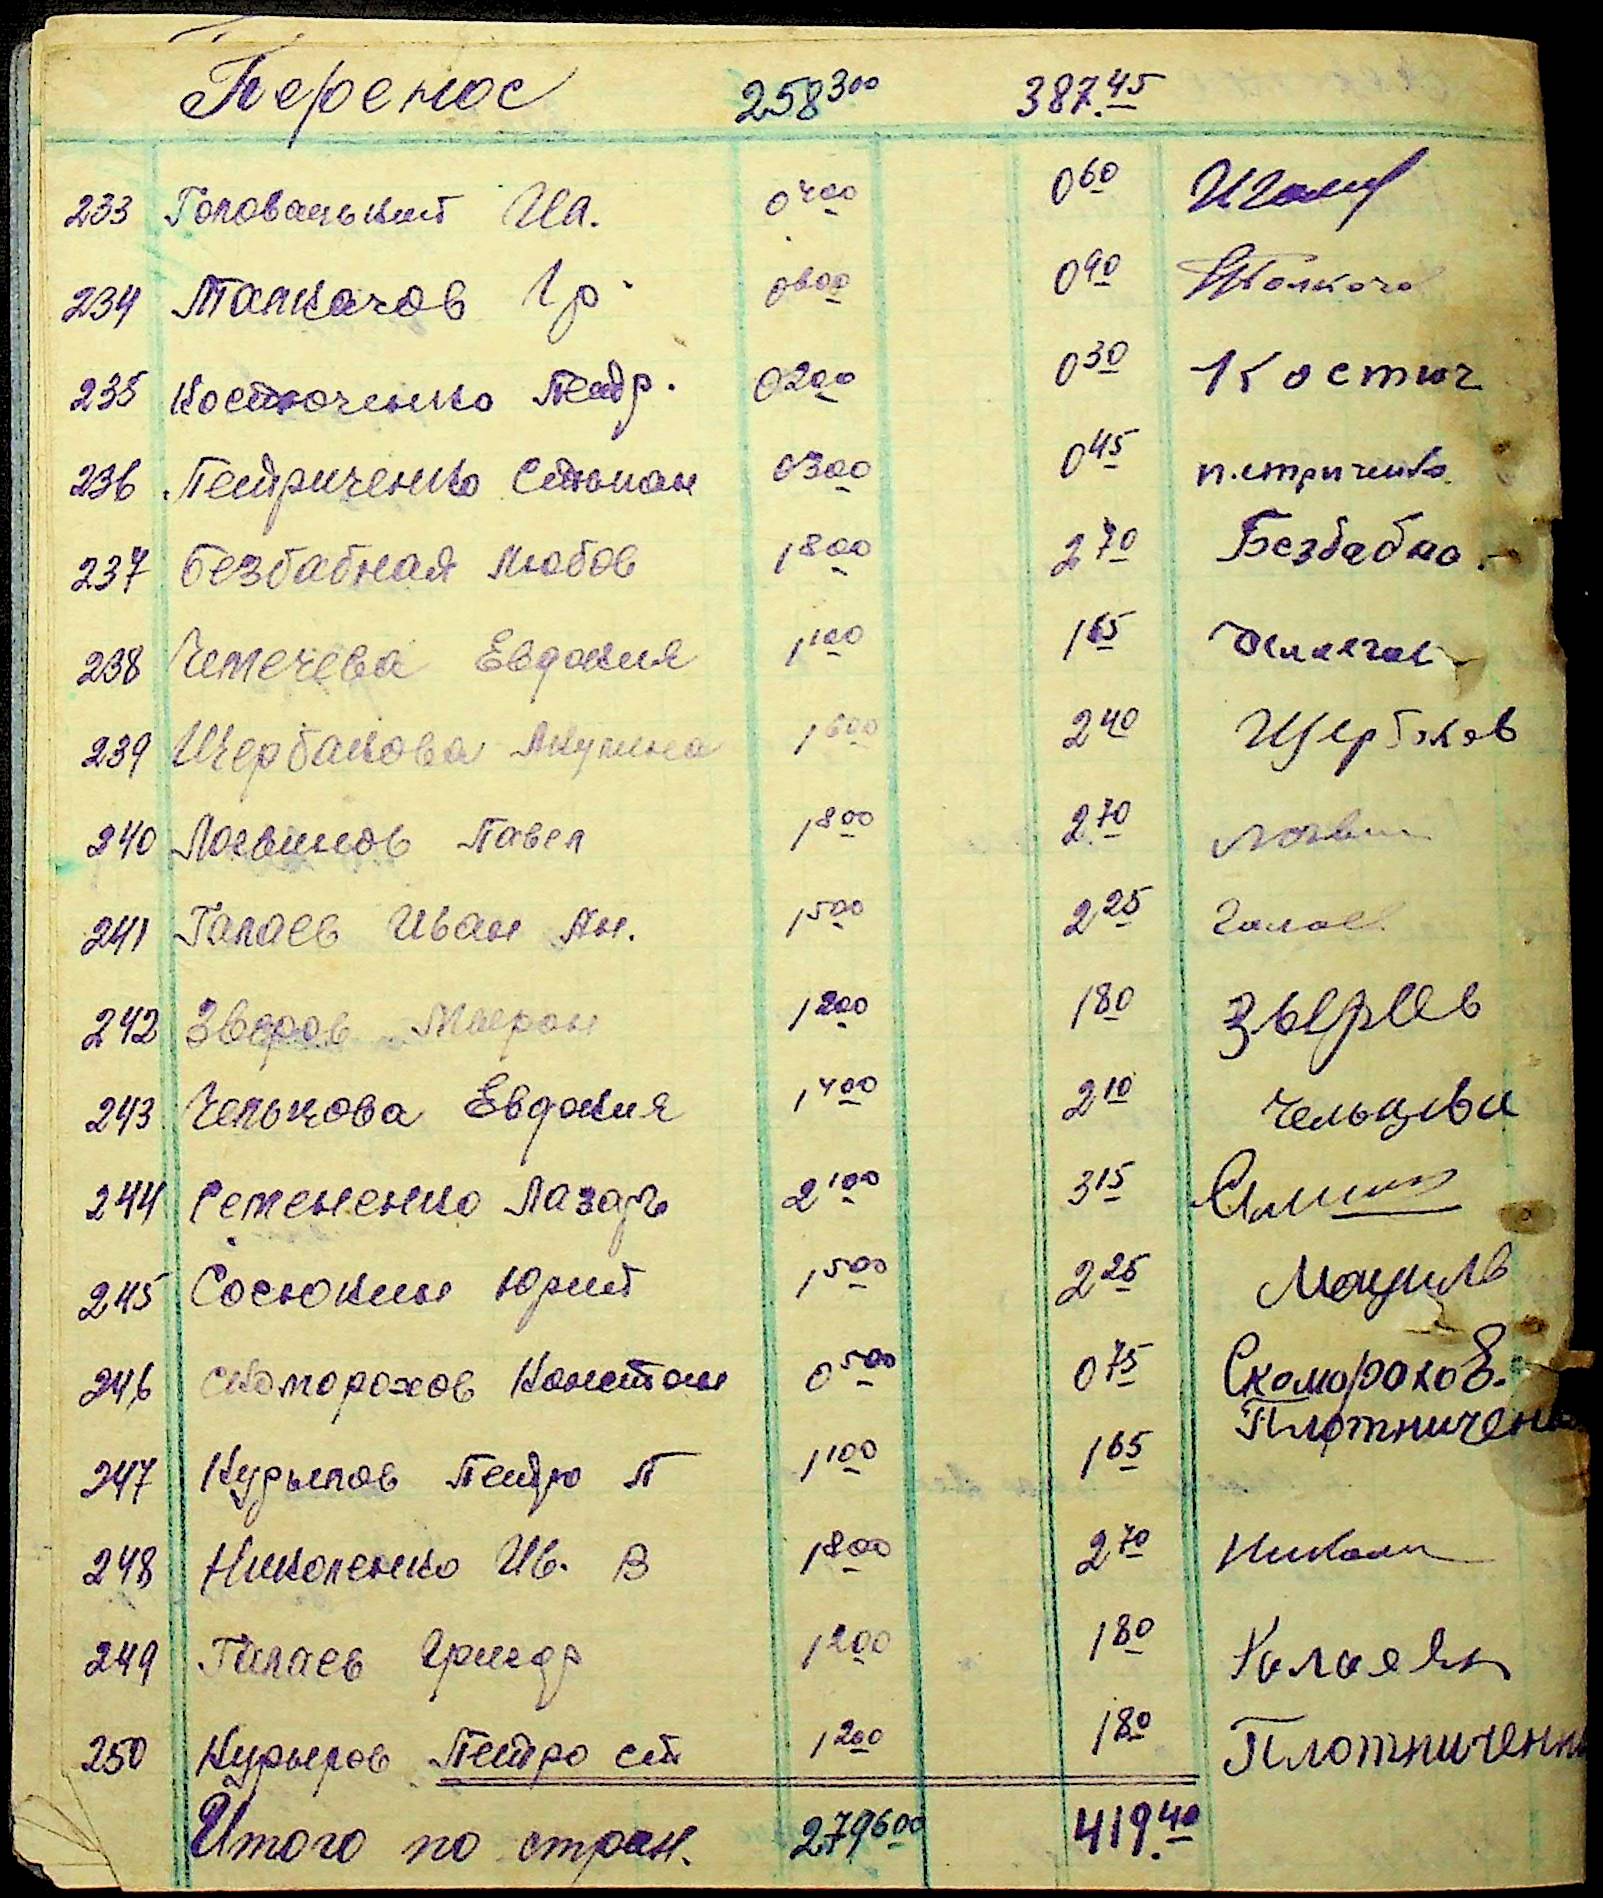 Перенос 258 300 387.45
233 Головацький Ил. 0 400 0 60
234 Талкачов Гр. 0 600 0 90
235 Костюченко Петр. 0 200 0 30 Костюч
236 Петриченко Степан 0 300 0 45 петриченко
237 Безбабная Любов 1 800 2 70 Безбабна
238 Чепечева Евдокия 1 100 1 65
239 Щербакова Акулина 1 600 2 40 Щербаков
240 Логвинов Павел 1 800 2 70 Логвин
241 Галаев Иван Ан. 1 500 2 25 Галаев
242 Зверов Мирон 1 200 1 80 Зыерев
243 Чельцова Евдокия 1 400 2 10 Чельцова
244 Семененко Лазарь 2 100 3 15
245 Сосюкин Юрий 1 500 2 25
246 Скоморохов Констан 0 500 0 75 Скоморохов.
247 Курылов Петро П 1 100 1 65 Плотничен
248 Николенко Ив. В 1 800 2 70 Никол
249 Галаев Григор 1 200 1 80
250 Курылов Петро ст 1 200 1 80 Плотничен
Итого по стран. 279 600 419.40